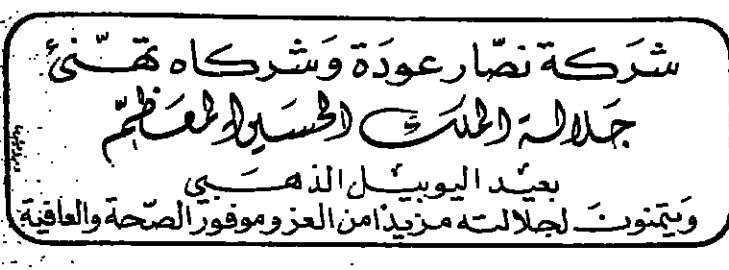 شَركة نصّار عودَة وَشركاه تهَنّئ
جَلالة الملكَ الحسَين المعَظمّ
بعيْد اليوبيْل الذهَبي
وَيتمنونَ لجلالته مزيدًا من العز وموفور الصّحة والعافية